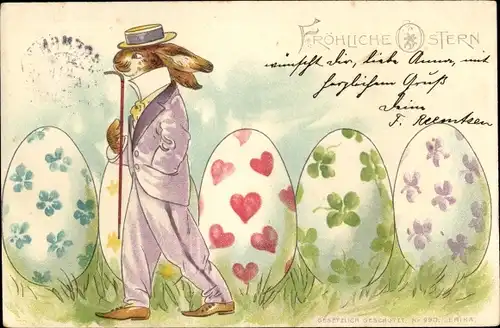 FRÖHLICHE OSTERN
wünscht dir, liebe Anna, mit
herzlichem Gruß
Deine
F. Reemtsen
GESETZLICH GESCHÜTZT.